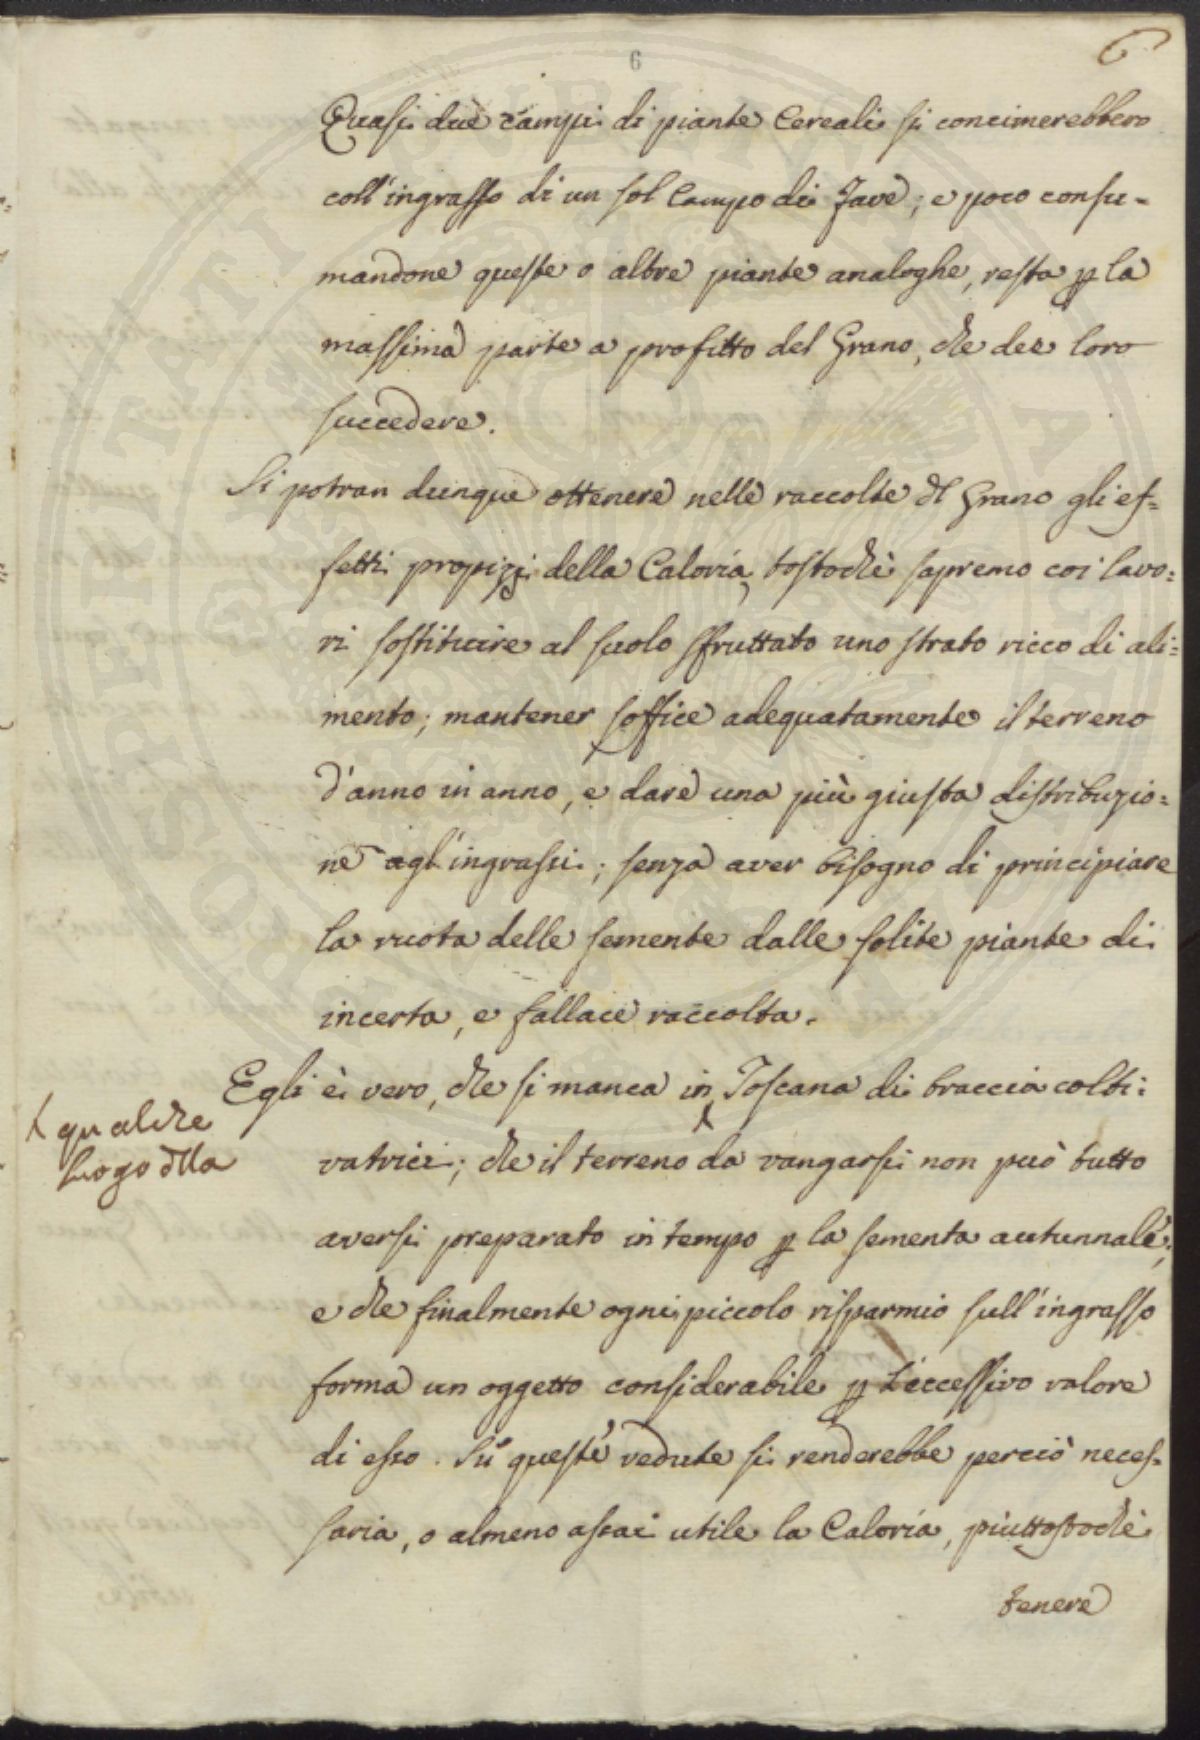 6
6
Quasi due campi di piante Cereali si concimerebbero
coll'ingrasso di un sol Campo di Fave; e poco consu=
mandone queste o altre piante analoghe, resta p la
massima parte a profitto del Grano, che dee loro
succedere.
Si potran dunque ottenere nelle raccolte dl Grano gli ef=
fetti propizj della Caloria, tostochè sapremo coi lavo=
ri sostituire al suolo sfruttato uno strato ricco di ali=
mento; mantener soffice adequatamente il terreno
d'anno in anno, e dare una più giusta distribuzio=
ne agl'ingrassi; senza aver bisogno di principiare
la ruota delle semente dalle solite piante di
incerta, e fallace raccolta.
Egli è vero, che si manca in Toscana di braccia colti=
qualche
luogo dlla
vatrici; che il terreno da vangarsi non può tutto
aversi preparato in tempo p la sementa autunnale;
e che finalmente ogni piccolo risparmio sull'ingrasso
forma un oggetto considerabile p l'eccessivo valore
di esso. Su queste vedute si renderebbe perciò neces=
saria, o almeno assai utile la Caloria, piuttostochè
tenere